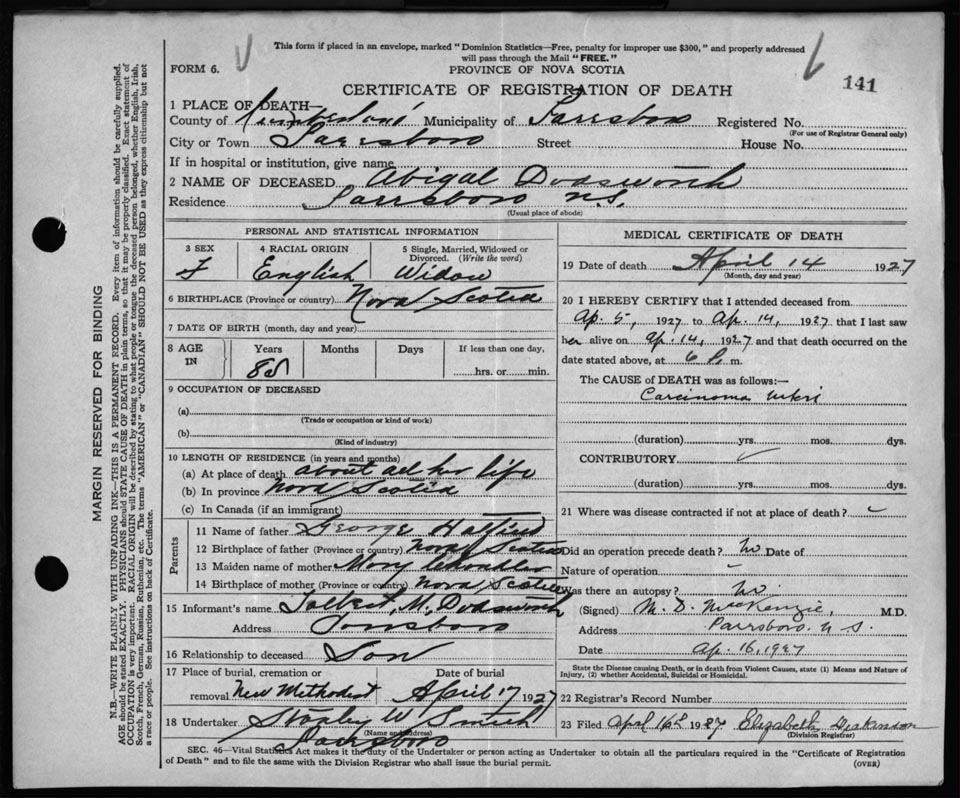 This form if placed in an envelope, marked "Dominion Statistics—Free, penalty for improper use $300," and properly addressed
will pass through the Mail "FREE."
FORM 6.
PROVINCE OF NOVA SCOTIA
141
CERTIFICATE OF REGISTRATION OF DEATH
1 PLACE OF DEATH—
County of Cumberland Municipality of Parrsboro Registered No.
(For use of Registrar General only)
City or Town Parrsboro Street House No.
If in hospital or institution, give name
2 NAME OF DECEASED Abigal Dodsworth
Residence Parrsboro N.S.
(Usual place of abode)
PERSONAL AND STATISTICAL INFORMATION
3 SEX
F
4 RACIAL ORIGIN
English
5 Single, Married, Widowed or
Divorced. (Write the word)
Widow
6 BIRTHPLACE (Province or country) Nova Scotia
7 DATE OF BIRTH (month, day and year)
8 AGE
IN
Years
Months
Days
If less than one day,
hrs. or min.
9 OCCUPATION OF DECEASED
(a)
(Trade or occupation or kind of work)
(b)
(Kind of industry)
10 LENGTH OF RESIDENCE (in years and months)
(a) At place of death about all her life
(b) In province Nova Scotia
(c) In Canada (if an immigrant)
Parents
11 Name of father George
12 Birthplace of father (Province or country) Nova Scotia
13 Maiden name of mother Mary
14 Birthplace of mother (Province or country) Nova Scotia
15 Informant's name M. Dodsworth
Address Parrsboro
16 Relationship to deceased Son
17 Place of burial, cremation or
removal New Methodist
Date of burial
April 17 1927
18 Undertaker Stanley W. Smith
(Name and address)
Parrsboro
MEDICAL CERTIFICATE OF DEATH
19 Date of death April 14 1927
(Month, day and year)
20 I HEREBY CERTIFY that I attended deceased from
Ap. 5, 1927 to Ap. 14, 1927 that I last saw
her alive on Ap. 14, 1927 and that death occurred on the
date stated above, at 6 P. m.
The CAUSE OF DEATH was as follows:—
Carcinoma uteri
(duration) yrs. mos. dys.
CONTRIBUTORY
(duration) yrs. mos. dys.
21 Where was disease contracted if not at place of death?
Did an operation precede death? No Date of
Nature of operation
Was there an autopsy? No
(Signed) M. D. MacKenzie, M.D.
Address Parrsboro. N.S.
Date Ap. 16, 1927
State the Disease causing Death, or in death from Violent Causes, state (1) Means and Nature of
Injury, (2) whether Accidental, Suicidal or Homicidal.
22 Registrar's Record Number
23 Filed April 16th 1927 Elizabeth
(Division Registrar)
SEC. 46—Vital Statistics Act makes it the duty of the Undertaker or person acting as Undertaker to obtain all the particulars required in the "Certificate of Registration
of Death" and to file the same with the Division Registrar who shall issue the burial permit.
(OVER)
MARGIN RESERVED FOR BINDING
N.B.—WRITE PLAINLY WITH UNFADING INK—THIS IS A PERMANENT RECORD. Every item of information should be carefully supplied.
AGE should be stated EXACTLY. PHYSICIANS should STATE CAUSE OF DEATH in plain terms, so that it may be properly classified. Exact statement of
OCCUPATION is very important. RACIAL ORIGIN will be described by stating to what people or tongue the deceased person belonged, whether English, Irish,
Scotch, French, German, Russian, Ruthenian, etc. The terms "AMERICAN" or "CANADIAN" SHOULD NOT BE USED as they express citizenship but not
a race or people. See instructions on back of Certificate.